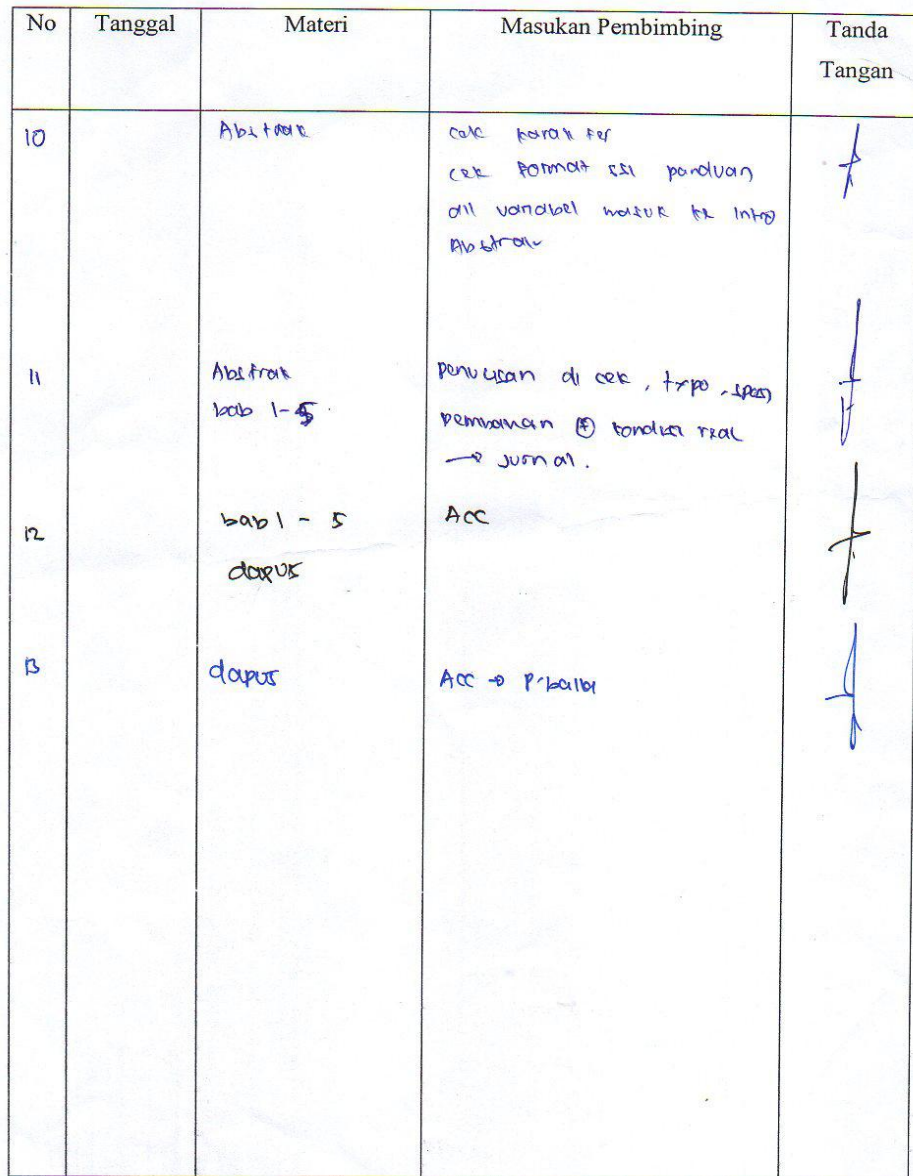 No Tanggal Materi Masukan Pembimbing Tanda Tangan
10 Abstrak cek karakter
cek format ssi panduan
all variabel masuk ke intro
Abstrak
11 Abstrak penulisan di cek, typo, spasi
bab 1-5 pembahasan + kondisi real
→ jurnal.
12 bab 1 - 5 Acc
dapus
13 dapus Acc →